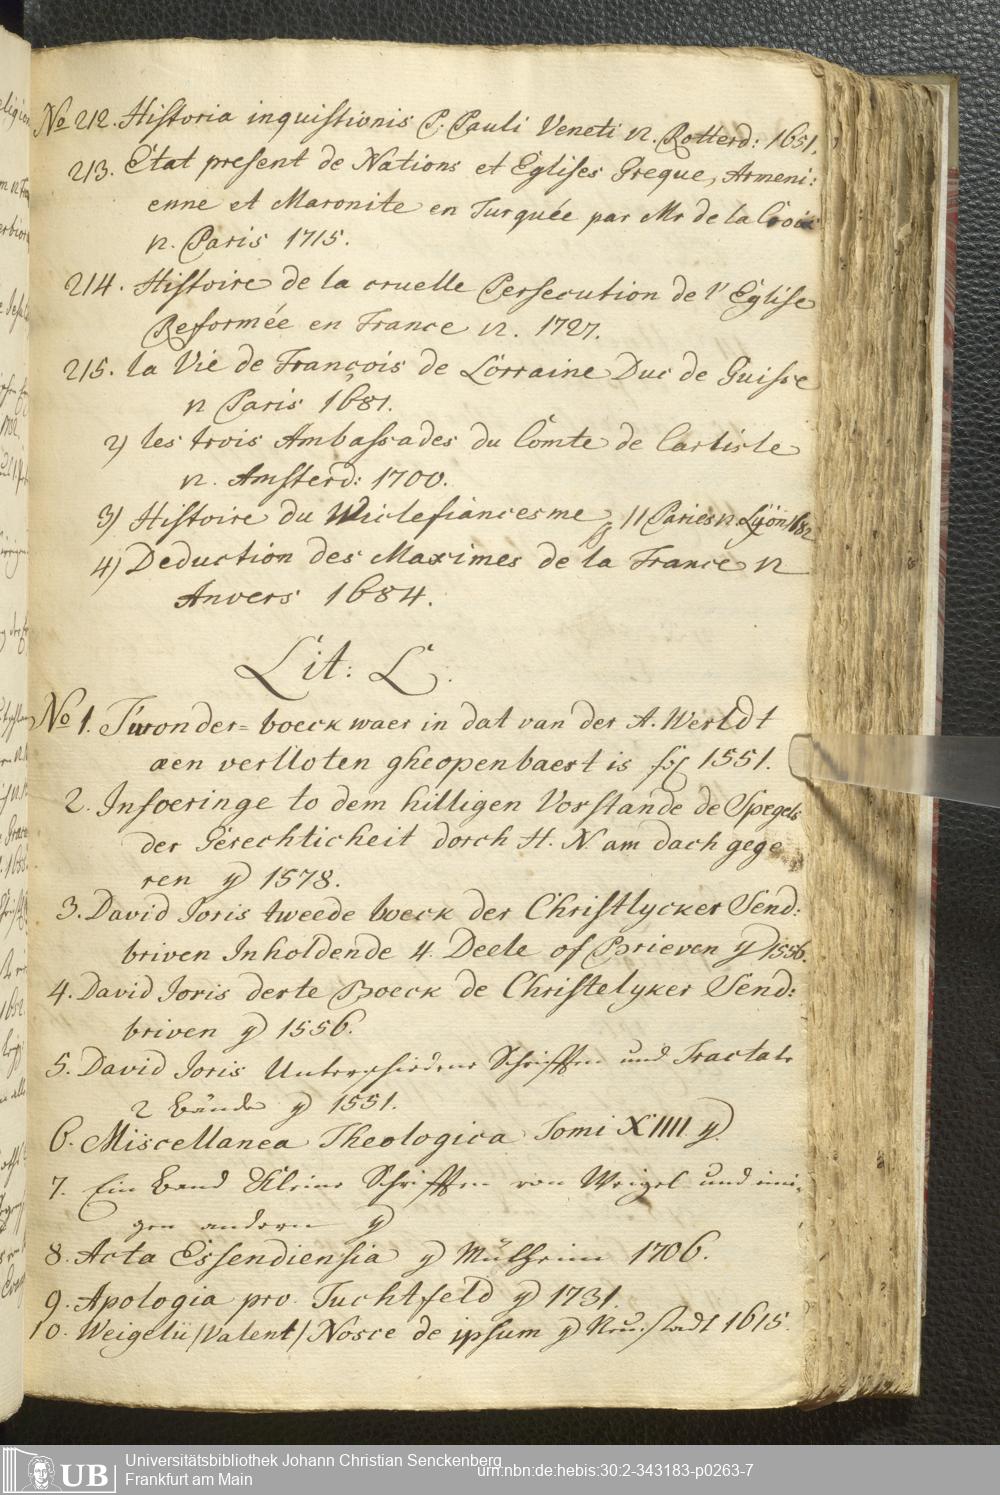 No 212. Historia inquisitionis P. Pauli Veneti 12. Rotterd: 1651.
213. Etat present de Nations et Eglises Greque, Armeni:
enne et Maronite en Turquée par Mr de la Croix
12. Paris 1715.
214. Histoire de la cruelle Persecution de l'Eglise
Reformée en France 12. 1727.
215. la Vie de François de Lorraine Duc de Guisse
12 Paris 1681.
2) les trois Ambassades du Comte de Carlisle
12. Amsterd: 1700.
3) Histoire du Wiclefiancesme 11 Paries 12. Lyön 1682
4) Deduction des Maximes de la France 12
Anvers 1684.
Lit: L.
No 1. T'wonder-boeck waer in dat van der A. Werldt
aen versloten gheopenbaert is fol 1551.
2. Infoeringe to dem hilligen Vorstande de Spegels
der Gerechticheit dorch H. N. am dach gege
ren 4 1578.
3. David Joris tweede boeck der Christlycker Send:
briven Inholdende 4. Deele of Brieven 4 1556.
4. David Joris derte Boeck de Christelyker Send:
briven 4 1556.
5. David Joris Unterschiedene Schrifften und Tractate
2 Bände 4 1551.
6. Miscellanea Theologica Tomi XIIII 4.
7. Ein Band Kleine Schrifften von Weigel und eini,
gen andern 4
8. Acta Essendiensia 4 Mülheim 1706.
9. Apologia pro Tuchtfeld 4 1731.
10. Weigelii /Valent/ Nosce de ipsum 4 Neustadt 1615.
UB
Universitätsbibliothek Johann Christian Senckenberg
Frankfurt am Main
urn:nbn:de:hebis:30:2-343183-p0263-7